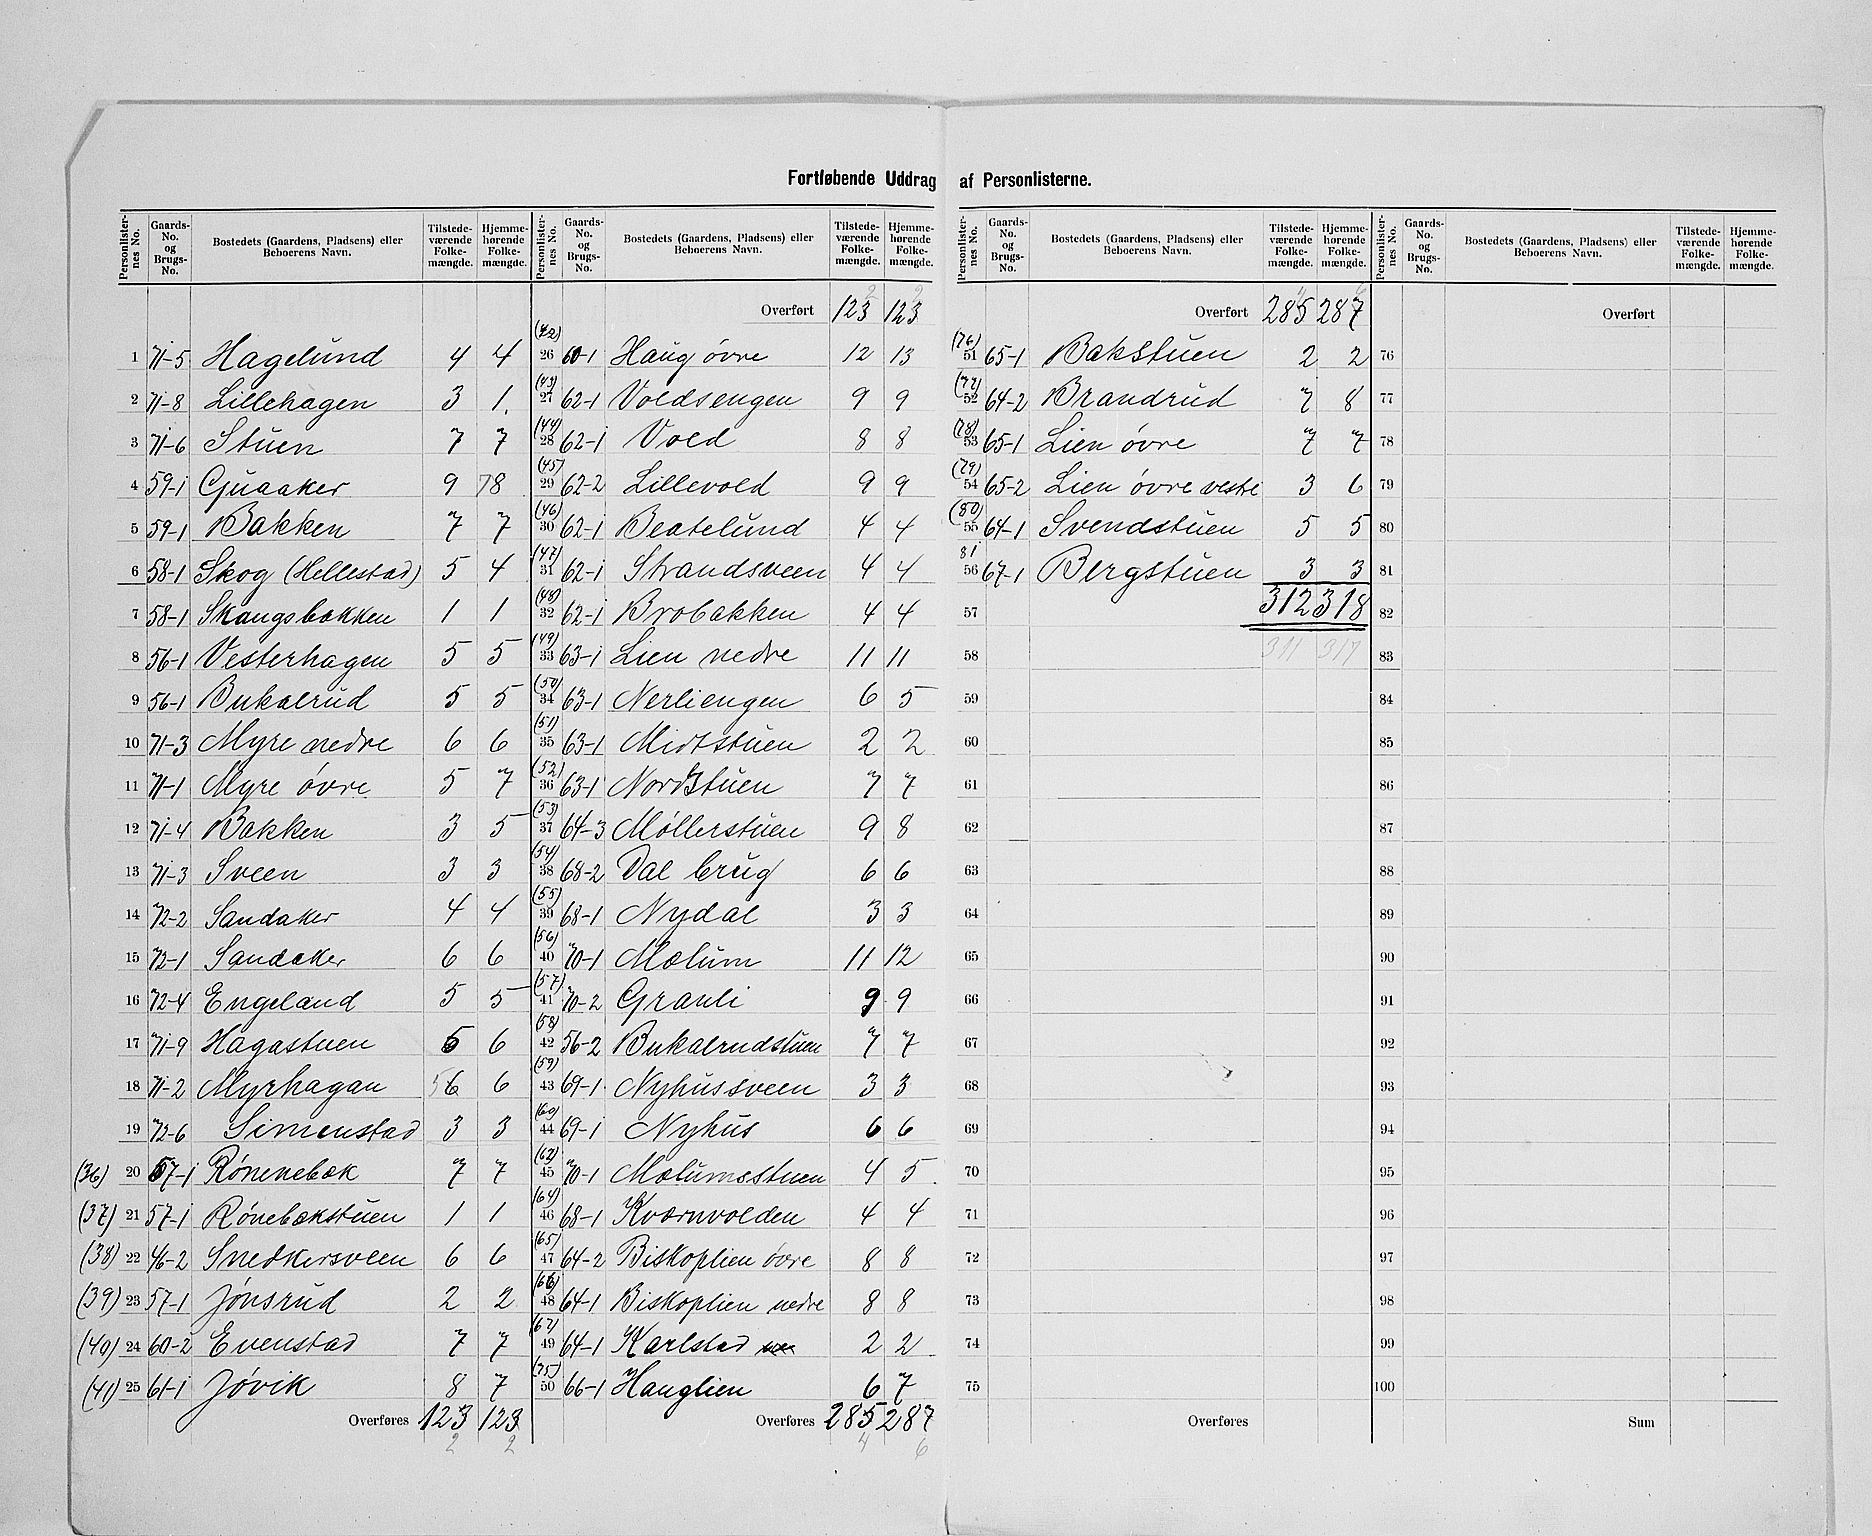 Fortløbende Uddrag af Personlisterne.
Personlisternes No. Gaards-No. og Brugs-No. Bostedets (Gaardens, Pladsens) eller Beboerens Navn. Tilstedeværende Folkemængde. Hjemmehørende Folkemængde.
1 71-5 Hagelund 4 4
2 71-8 Lillehagen 3 1
3 71-6 Stuen 7 7
4 59-1 Gjuaaker 9 78
5 59-1 Bakken 7 7
6 58-1 Skog (Hellestad) 5 4
7 58-1 Skaugsbakken 1 1
8 56-1 Vesterhagen 5 5
9 56-1 Bukalrud 5 5
10 71-3 Myre nedre 6 6
11 71-1 Myre óvre 5 7
12 71-4 Bakken 3 5
13 71-3 Sveen 3 3
14 72-2 Sandaker 4 4
15 72-1 Sandaker 6 6
16 72-4 Engeland 5 5
17 71-9 Hagastuen 5 6
18 71-2 Myrhagan 56 6
19 72-6 Simenstad 3 3
(36) 20 57-1 Rónenebæk 7 7
(37) 21 57-1 Rónebækstuen 1 1
(38) 22 46-2 Snedkersveen 6 6
(39) 23 57-1 Jónsrud 2 2
(40) 24 60-2 Evenstad 7 7
(41) 25 61-1 Jóvik 8 7
Overføres 123 123
2 2
Personlisternes No. Gaards-No. og Brugs-No. Bostedets (Gaardens, Pladsens) eller Beboerens Navn. Tilstedeværende Folkemængde. Hjemmehørende Folkemængde.
2 2
Overført 123 123
(42) 26 60-1 Haug óvre 12 13
(43) 27 62-1 Voldsengen 9 9
(44) 28 62-1 Vold 8 8
(45) 29 62-2 Lillevold 9 9
(46) 30 62-1 Beatelund 4 4
(47) 31 62-1 Strandsveen 4 4
(48) 32 62-1 Brobakken 4 4
(49) 33 63-1 Lien nedre 11 11
(50) 34 63-1 Nerliengen 6 5
(51) 35 63-1 Midtstuen 2 2
(52) 36 63-1 Nordstuen 7 7
(53) 37 64-3 Møllerstuen 9 8
(54) 38 68-2 Dal brug 6 6
(55) 39 68-1 Nydal 3 3
(56) 40 70-1 Mælum 11 12
(57) 41 70-2 Granli 9 9
(58) 42 56-2 Bukalrudstuen 7 7
(59) 43 69-1 Nyhussveen 3 3
(60) 44 69-1 Nyhus 6 6
(62) 45 70-1 Mælumsstuen 4 5
(64) 46 68-1 Kværnvolden 4 4
(65) 47 64-2 Biskoplien óvre 8 8
(66) 48 64-1 Biskoplien nedre 8 8
(67) 49 64-1 Karlstad 2 2
(75) 50 66-1 Hauglien 6 7
Overføres 285 287
4 6
Personlisternes No. Gaards-No. og Brugs-No. Bostedets (Gaardens, Pladsens) eller Beboerens Navn. Tilstedeværende Folkemængde. Hjemmehørende Folkemængde.
4 6
Overført 285 287
(76) 51 65-1 Bakstuen 2 2
(77) 52 64-2 Brandrud 7 8
(78) 53 65-1 Lien óvre 7 7
(79) 54 65-2 Lien óvre vestre 3 6
(80) 55 64-1 Svendstuen 5 5
81 56 67-1 Bergstuen 3 3
57 312 318
58 311 317
59
60
61
62
63
64
65
66
67
68
69
70
71
72
73
74
75
Overføres
Personlisternes No. Gaards-No. og Brugs-No. Bostedets (Gaardens, Pladsens) eller Beboerens Navn. Tilstedeværende Folkemængde. Hjemmehørende Folkemængde.
Overført
76
77
78
79
80
81
82
83
84
85
86
87
88
89
90
91
92
93
94
95
96
97
98
99
100
Sum